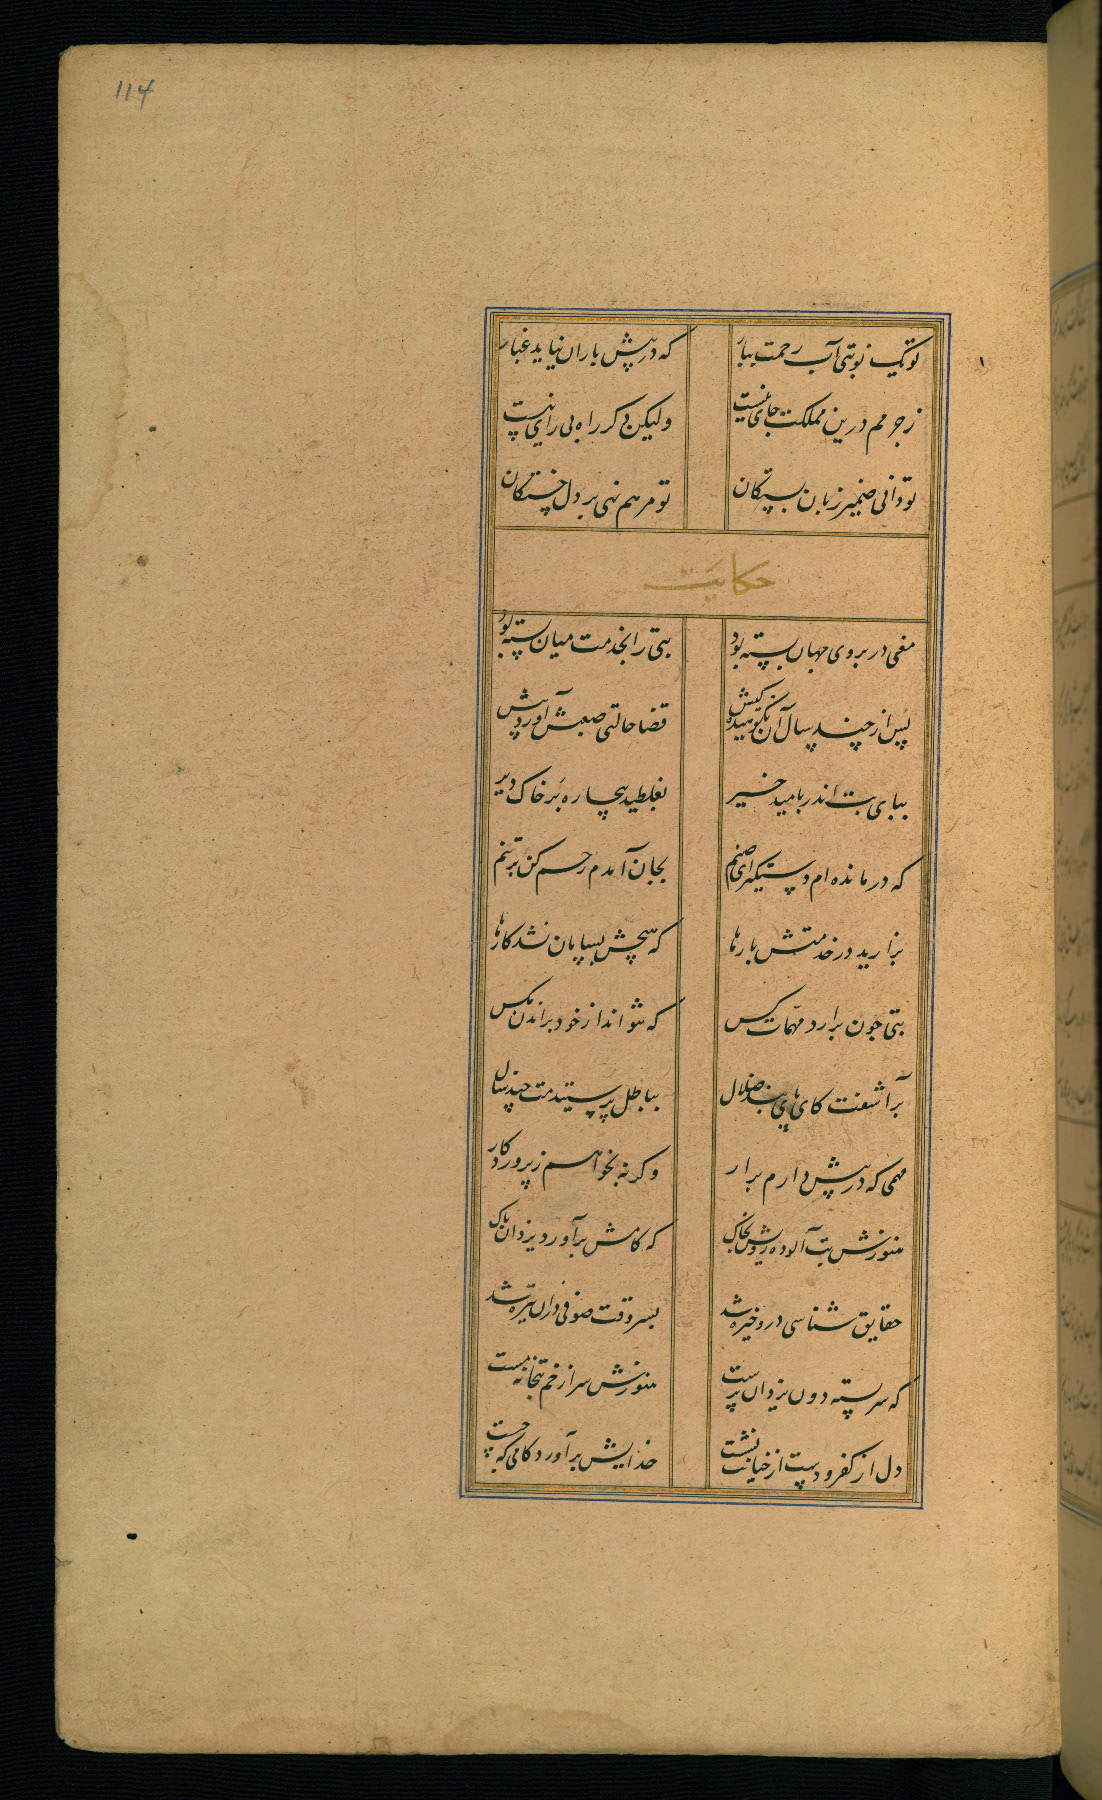 114
تو یک نوبتی آب رحمت ببار که در پیش باران نیاید غبار
ز جرمم درین مملکت جای نیست ولیکن دگر راه بی رای نیست
تو دانی ضمیر زبان بستگان تو مرهم نهی بر دل خستگان
حکایت
مغی در بروی جهان بسته بود بتی را بخدمت میان بسته بود
پس از چند سال آن نکوهیده کیش قضا حالتی صعبش آورد پیش
بپای بت اندر بامید خیر بغلطید بیچاره بر خاک دیر
که درمانده ام دستگیر ای صنم بجان آمدم رحم کن بر تنم
بزارید در خدمتش بارها که هیچش بسامان نشد کارها
بتی چون برارد مهمات کس که نتواند از خود براندن مکس
برآشفت کای پای بند ضلال بباطل پرستیدمت چند سال
مهمی که در پیش دارم برار وکرنه بخواهم ز پروردکار
هنوزش بت آلوده رویش بخاک که کامش برآورد یزدان پاک
حقایق شناسی درو خیره شد بسر وقت صوفی دران تیره شد
که سرکشته دون یزدان پرست هنوزش سر از خم بتخانه مست
دل از کفر و دست از خیانت نشست خدایش برآورد کامی که جست